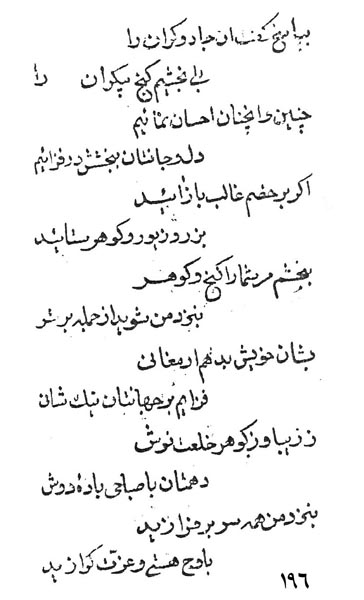 بپاسخ گفت ان جادوگران را
بلی بخشیم گنج بیکران را
چنین و انچنان احسان نمائیم
دل و جانتان ببخشش در فزائیم
اگر بر خصم غالب باز ائید
بزر و زیور و گوهر ستائید
ببخشم مر شما را گنج و گوهر
بنزد من شوید از جمله برتر
بشان خویش بدهم ارمغانی
فزایم بر جهانتان نیک شانی
ز زیبا و ز گوهر خلعت نوش
دهمتان با صباحی باده دوش
بنزد من همه سر بر فرازید
باوج هستی و عزت گرازید
۱۹۶